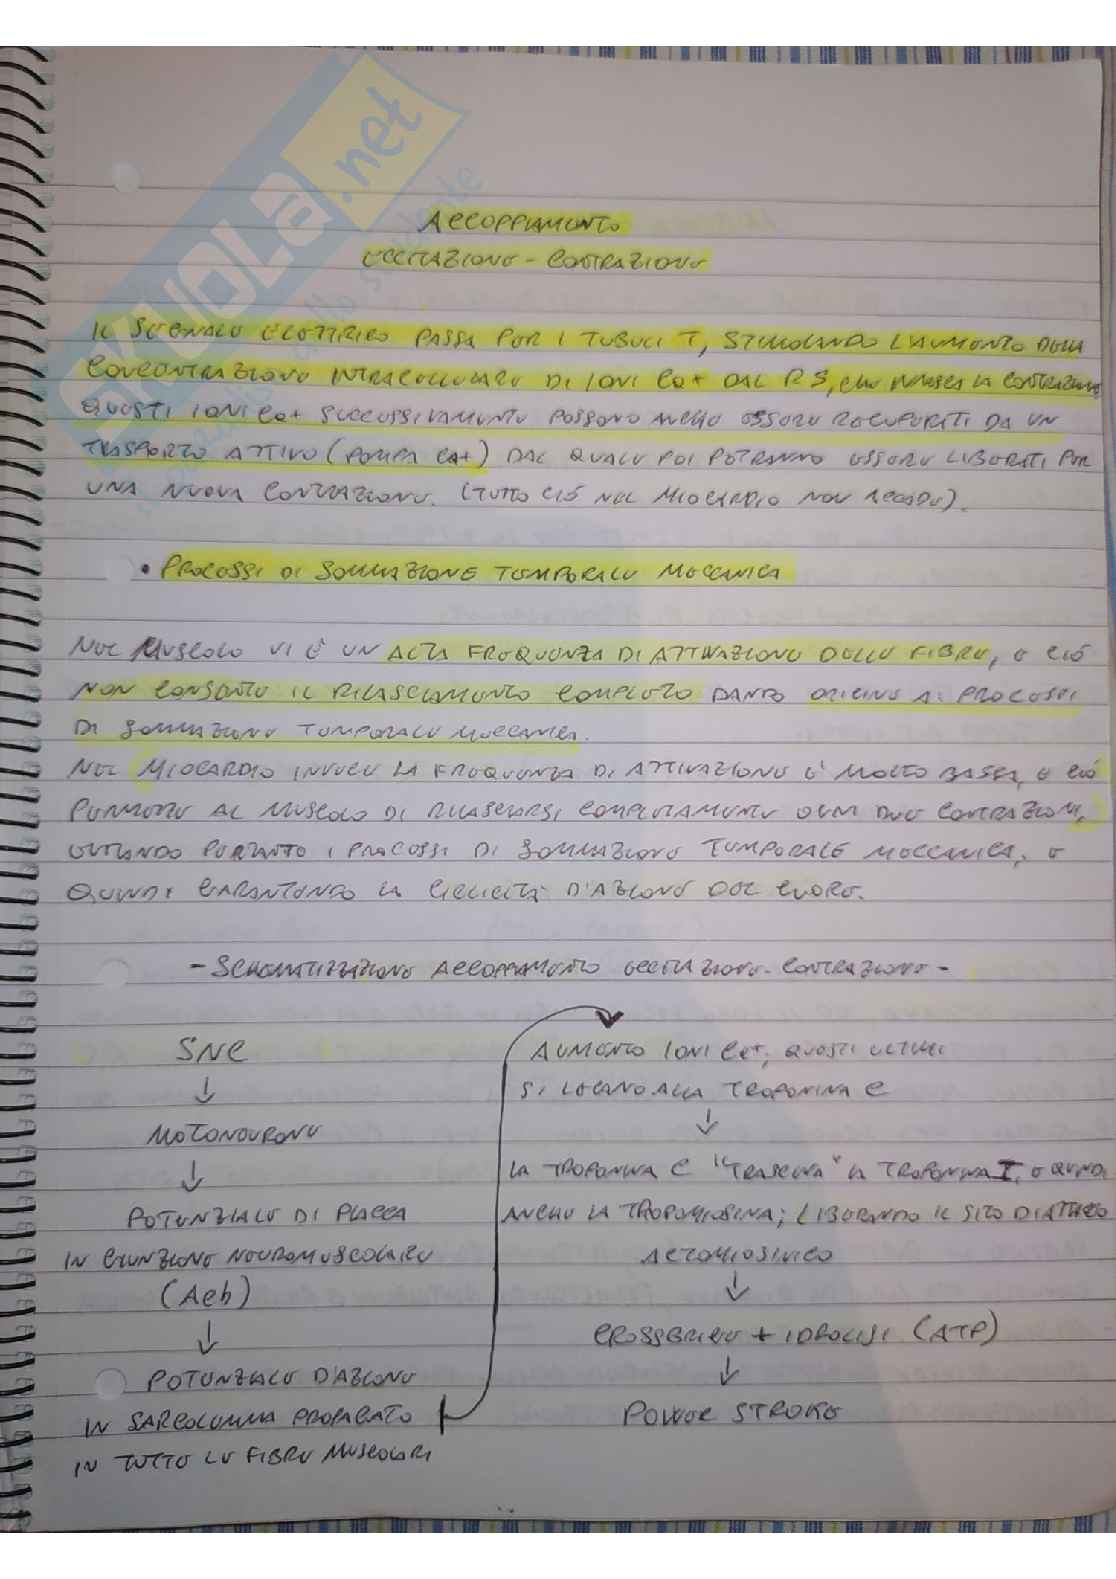 ACCOPPIAMENTO
ECCITAZIONE - CONTRAZIONE
IL SEGNALE ELETTRICO PASSA PER I TUBULI T, STIMOLANDO L'AUMENTO DELLA
CONCENTRAZIONE INTRACELLULARE DI IONI Ca+ DAL RS, CHE INNESCA LA CONTRAZIONE
QUESTI IONI Ca+ SUCCESSIVAMENTE POSSONO ANCHE ESSERE RECUPERATI DA UN
TRASPORTO ATTIVO (POMPA Ca+) DAL QUALE POI POTRANNO ESSERE LIBERATI PER
UNA NUOVA CONTRAZIONE. (TUTTO CIÓ NEL MIOCARDIO NON ACCADE).
• PROCESSI DI SOMMAZIONE TEMPORALE MECCANICA
NEL MUSCOLO VI È UN ALTA FREQUENZA DI ATTIVAZIONE DELLE FIBRE, E CIÓ
NON CONSENTE IL RILASCIAMENTO COMPLETO DANDO ORIGINE AI PROCESSI
DI SOMMAZIONE TEMPORALE MECCANICA.
NEL MIOCARDIO INVECE LA FREQUENZA DI ATTIVAZIONE È MOLTO BASSA, E CIÓ
PERMETTE AL MUSCOLO DI RILASCIARSI COMPLETAMENTE OGNI DUE CONTRAZIONI,
EVITANDO PERTANTO I PROCESSI DI SOMMAZIONE TEMPORALE MECCANICA, E
QUINDI GARANTENDO LA CICLICITÀ D'AZIONE DEL CUORE.
- SCHEMATIZZAZIONE ACCOPPIAMENTO ECCITAZIONE-CONTRAZIONE -
SNC
↓
MOTONEURONE
↓
POTENZIALE DI PLACCA
IN GIUNZIONE NEUROMUSCOLARE
(Ach)
↓
POTENZIALE D'AZIONE
IN SARCOLEMMA PROPAGATO
IN TUTTE LE FIBRE MUSCOLARI
AUMENTO IONI Ca+, QUESTI ULTIMI
SI LEGANO ALLA TROPONINA C
↓
LA TROPONINA C "TRASCINA" LA TROPONINA I, E QUINDI
ANCHE LA TROPOMIOSINA; LIBERANDO IL SITO DI ATTACCO
ACTOMIOSINICO
↓
CROSSBRIDGE + IDROLISI (ATP)
↓
POWER STROKE
SKUOLA.net